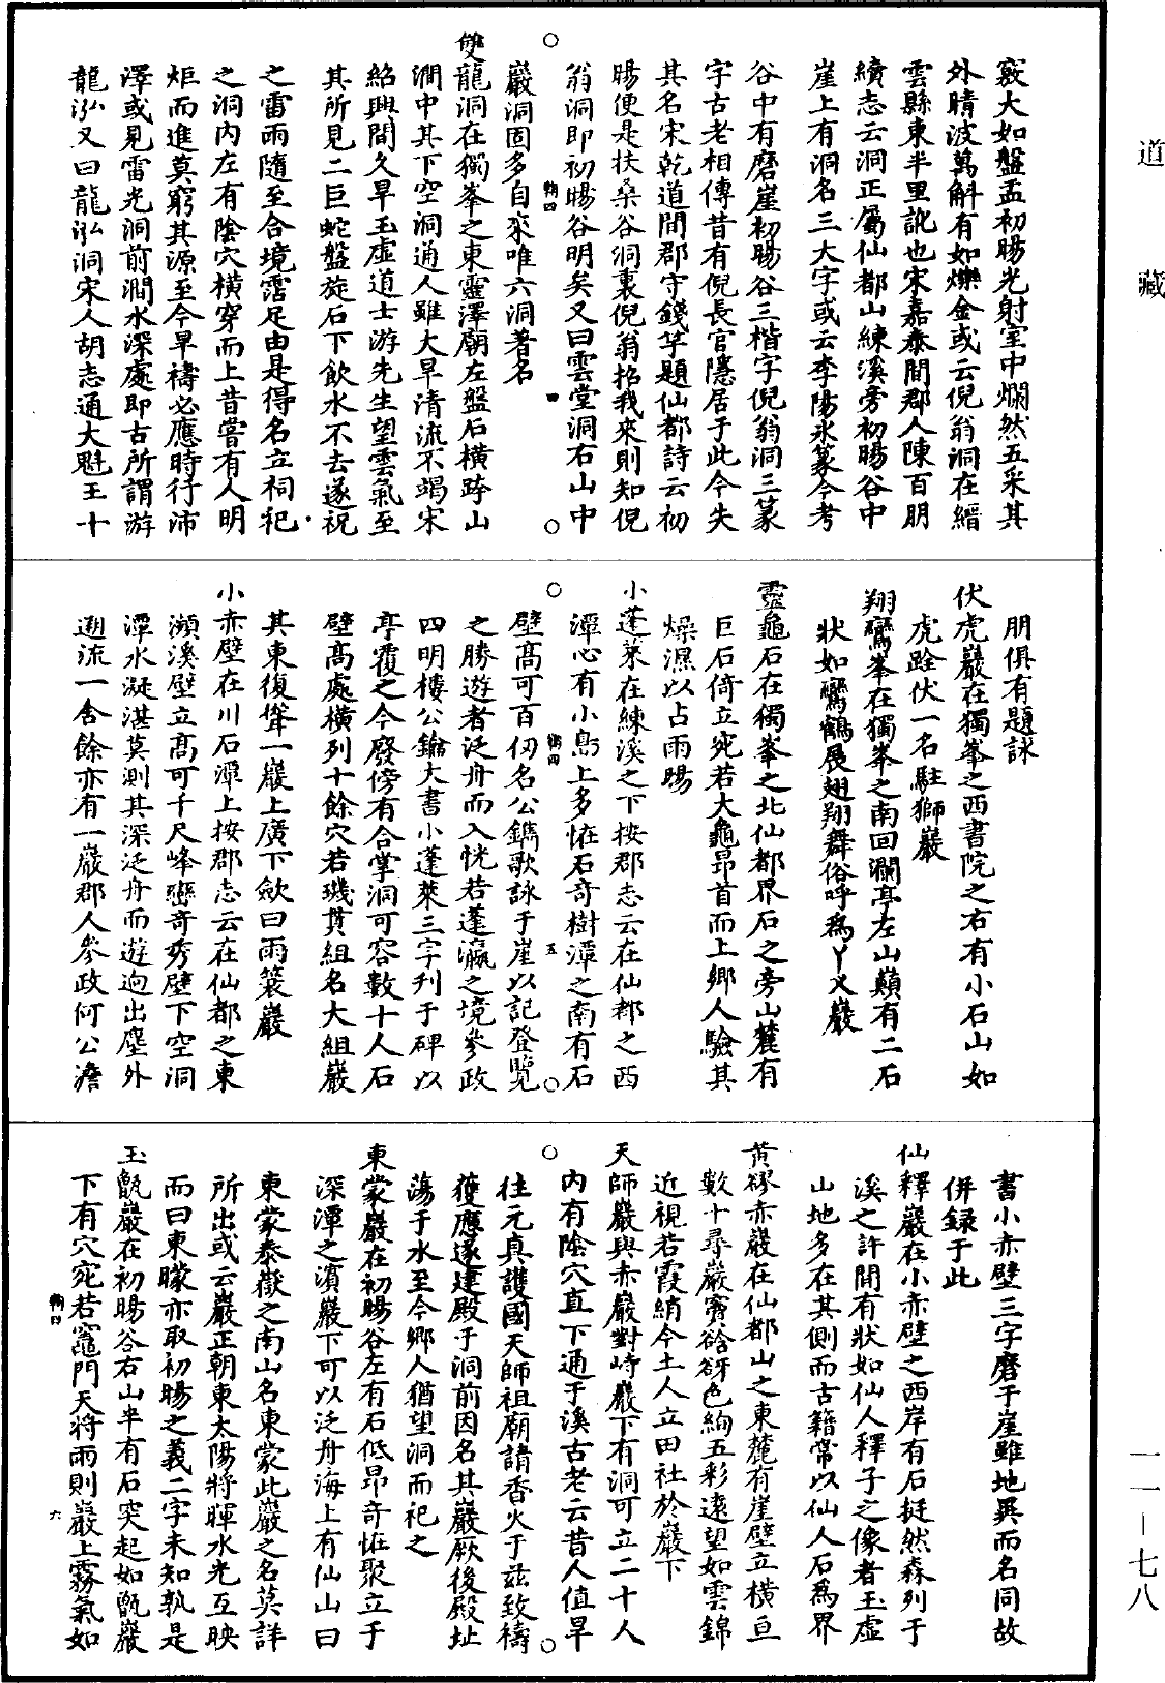 道藏
竅大如盤盂初暘光射室中爛然五采其
外晴波萬斛有如爍金或云倪翁洞在縉
雲縣東半里訛也宋嘉泰間郡人陳百朋
續志云洞正屬仙都山練溪旁初暘谷中
崖上有洞名三大字或云李陽氷篆今考
谷中有磨崖初暘谷三楷字倪翁洞三篆
字古老相傳昔有倪長官隱居于此今失
其名宋乾道間郡守錢竽題仙都詩云初
暘便是扶桑谷洞裏倪翁招我來則知倪
翁洞即初暘谷明矣又曰雲堂洞石山中
四
巖洞固多自來唯六洞著名
雙龍洞在獨峯之東靈澤廟左盤石橫跨山
澗中其下空洞通人雖大旱清流不竭宋
紹興間久旱玉虛道士游先生望雲氣至
其所見二巨蛇盤旋石下飲水不去遂祝
之雷雨隨至合境霑足由是得名立祠祀
之洞內左有陰穴橫穿而上昔嘗有人明
炬而進莫窮其源至今旱禱必應時行沛
澤或見雷光洞前澗水深處即古所謂游
龍泓又曰龍泓洞宋人胡志通大魁王十
朋俱有題詠
伏虎巖在獨峯之西書院之右有小石山如
虎跧伏一名駐獅巖
翔鸞峯在獨峯之南回瀾亭左山巔有二石
狀如鸞鶴展翅翔舞俗呼爲丫乂巖
靈龜石在獨峯之北仙都界石之旁山麓有
巨石倚立宛若大龜昂首而上鄉人驗其
燥濕以占雨暘
小蓬萊在練溪之下按郡志云在仙都之西
潭心有小島上多恠石奇樹潭之南有石
五
壁高可百仞名公鐫歌詠于崖以記登覽
之勝遊者泛舟而入恍若蓬瀛之境參政
四明樓公鑰大書小蓬萊三字刋于碑以
亭覆之今廢傍有合掌洞可容數十人石
壁高處橫列十餘穴若璣貫組名大組巖
其東復聳一巖上廣下歛曰雨蓑巖
小赤壁在川石潭上按郡志云在仙都之東
瀕溪壁立高可千尺峰巒奇秀壁下空洞
潭水凝湛莫測其深泛舟而遊逈出塵外
遡流一舍餘亦有一巖郡人參政何公澹
書小赤壁三字磨于崖雖地異而名同故
倂録于此
仙釋巖在小赤壁之西岸有石挺然森列于
溪之許間有狀如仙人釋子之像者玉虛
山地多在其側而古籍常以仙人石爲界
黃繆赤巖在仙都山之東麓有崖壁立橫亘
數十尋巖竇谽谺色絢五彩遠望如雲錦
近視若霞綃今土人立田社於巖下
天師巖與赤巖對峙巖下有洞可立二十人
內有陰穴直下通于溪古老云昔人值旱
往元真護國天師祖廟請香火于茲致禱
獲應遂建殿于洞前因名其巖厥後殿址
蕩于水至今鄉人猶望洞而祀之
東蒙巖在初暘谷左有石低昂奇恠聚立于
深潭之濱巖下可以泛舟海上有仙山曰
東蒙泰嶽之南山名東蒙此巖之名莫詳
所出或云巖正朝東太陽將暉水光互映
而曰東矇亦取初暘之義二字未知孰是
玉甑巖在初暘谷右山半有石突起如甑巖
下有穴宛若竈門天將雨則巖上霧氣如
六
一一－七八